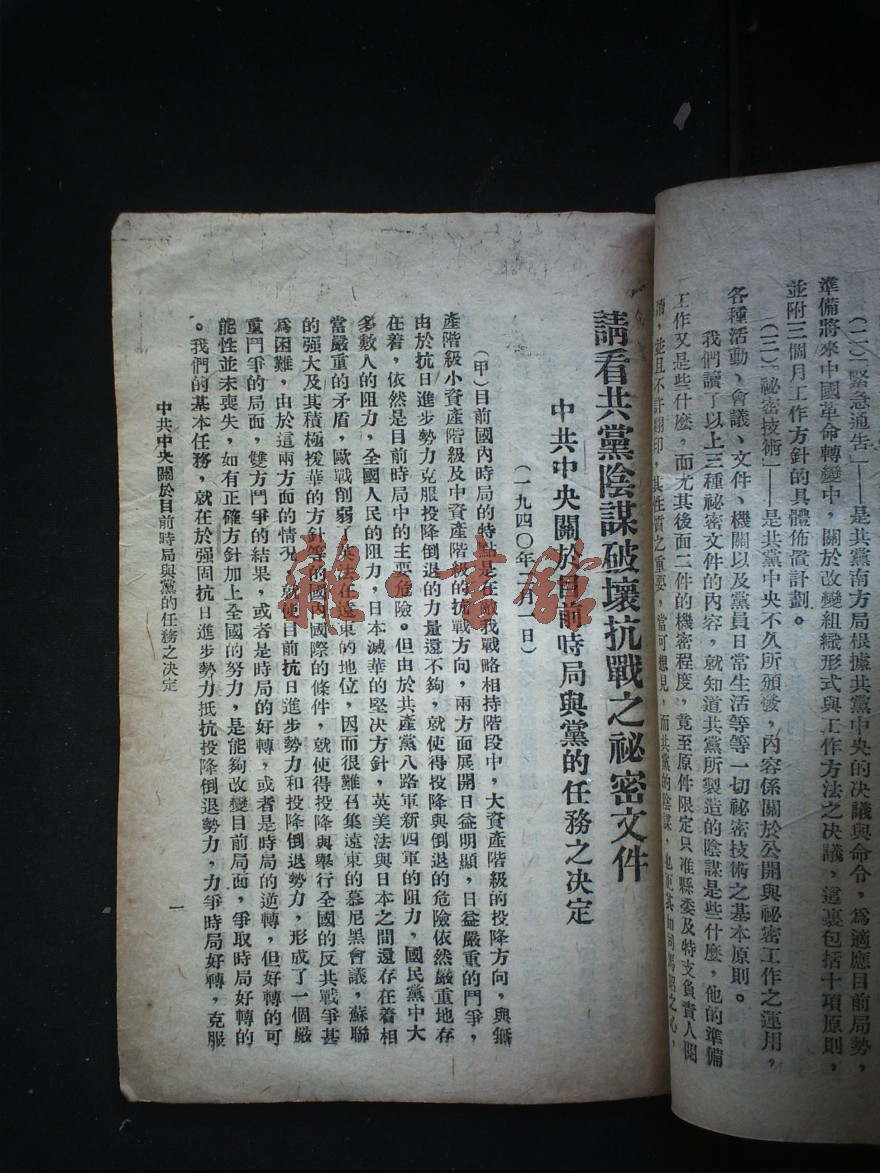 (二)「緊急通告」——是共黨南方局根據共黨中央的决議與命令,為適應目前局勢,
準備將來中國革命轉變中,關於改變組織形式與工作方法之决議,這裏包括十項原則,
並附三個月工作方針的具體佈置計劃。
(三)「祕密技術」——是共黨中央不久所頒發,內容係關於公開與祕密工作之運用,
各種活動、會議、文件、機關以及黨員日常生活等等一切祕密技術之基本原則。
我們讀了以上三種祕密文件的內容,就知道共黨所製造的陰謀是些什麼,他的準備
工作又是些什麼,而尤其後面二件的機密程度,竟至原件限定只准縣委及特支負責人閱
讀,並且不許翻印,其性質之重要,當可想見,而共黨的陰謀,也更其如司馬昭之心,
請看共黨陰謀破壞抗戰之祕密文件
中共中央關於目前時局與黨的任務之决定
(一九四〇年 月一日)
(甲)目前國內時局的特點是在敵我戰略相持階段中,大資產階級的投降方向,與無
產階級小資產階級及中資產階級的抗戰方向,兩方面展開日益明顯,日益嚴重的鬥爭,
由於抗日進步勢力克服投降倒退的力量還不夠,就使得投降與倒退的危險依然嚴重地存
在着,依然是目前時局中的主要危險。但由於共產黨八路軍新四軍的阻力,國民黨中大
多數人的阻力,全國人民的阻力,日本滅華的堅决方針,英美法與日本之間還存在着相
當嚴重的矛盾,歐戰削弱了英法在遠東的地位,因而很難召集遠東的慕尼黑會議,蘇聯
的强大及其積極援華的方針等的國內國際的條件,就使得投降與舉行全國的反共戰爭甚
為困難,由於這兩方面的情况,就使目前抗日進步勢力和投降倒退勢力,形成了一個嚴
重鬥爭的局面,雙方鬥爭的結果,或者是時局的好轉,或者是時局的逆轉,但好轉的可
能性並未喪失,如有正確方針加上全國的努力,是能夠改變目前局面,爭取時局好轉的
。我們的基本任務,就在於强固抗日進步勢力抵抗投降倒退勢力,力爭時局好轉,克服
中共中央關於目前時局與黨的任務之决定
一
雜·書館